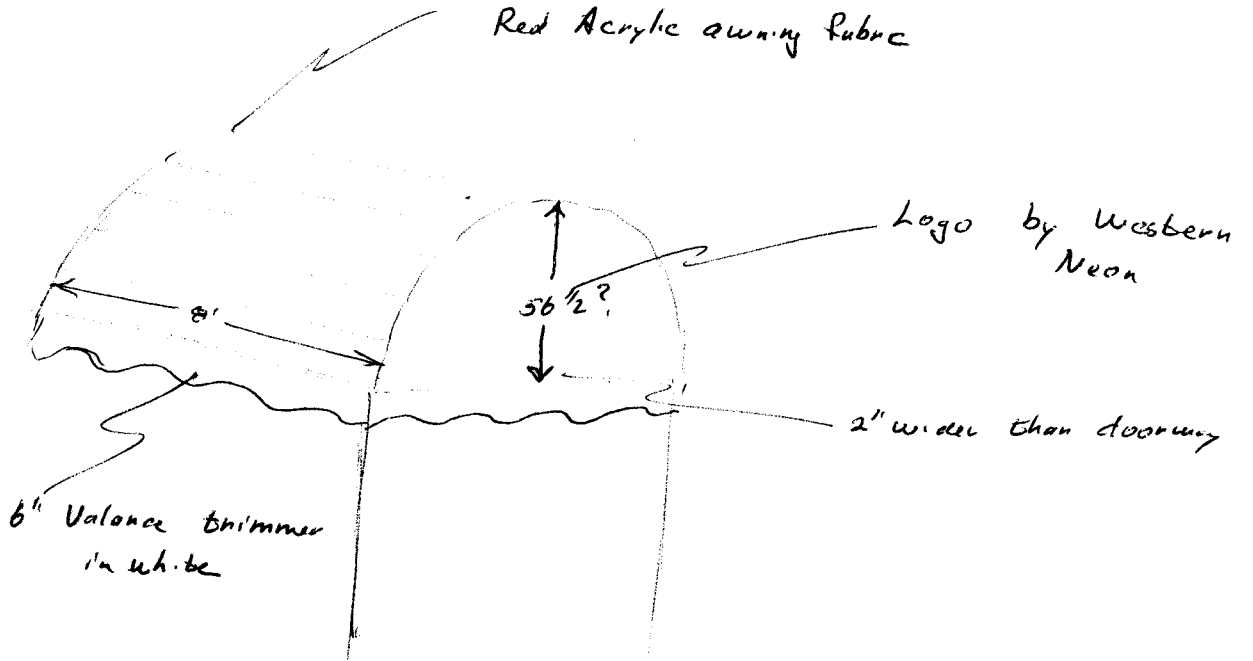 Red Acrylic awning fabric
Logo by Western
Neon
56 1/2 ?
8'
2" wider than doorway
6" Valance trimmer
in white